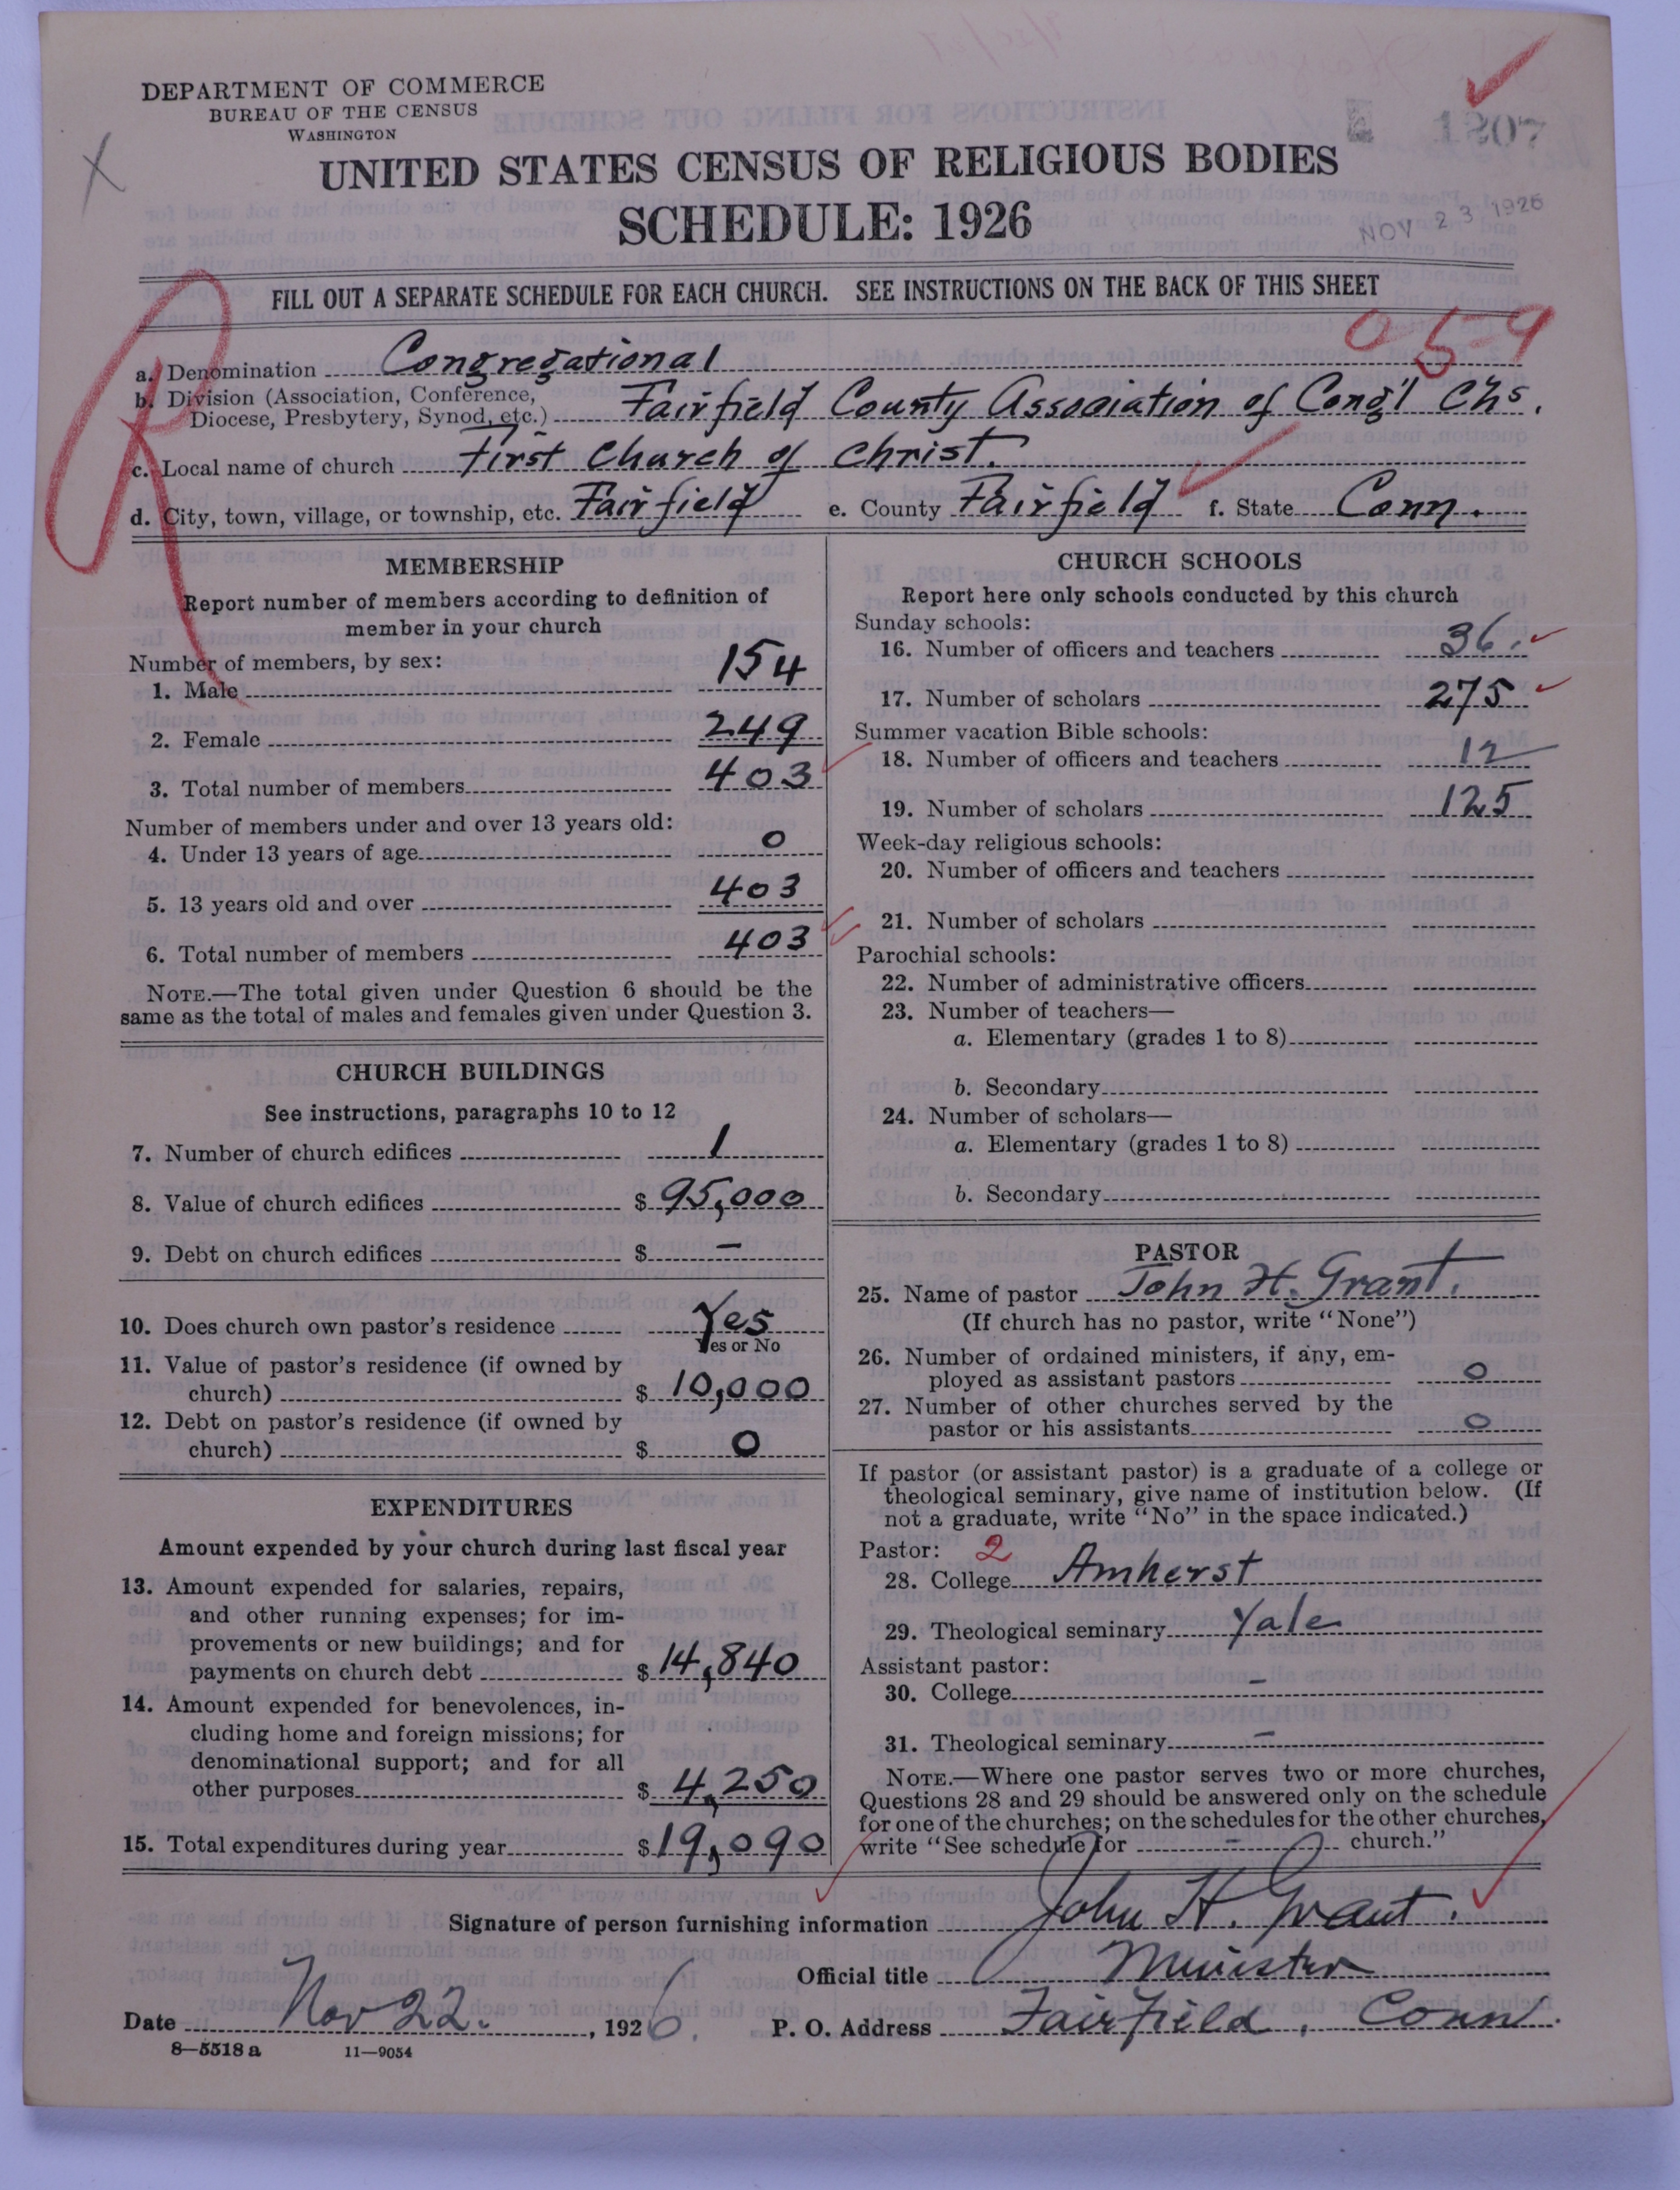 DEPARTMENT OF COMMERCE
BUREAU OF THE CENSUS
WASHINGTON
1207
UNITED STATES CENSUS OF RELIGIOUS BODIES
SCHEDULE: 1926
NOV 23 1926
FILL OUT A SEPARATE SCHEDULE FOR EACH CHURCH. SEE INSTRUCTIONS ON THE BACK OF THIS SHEET
a. Denomination Congregational
b. Division (Association, Conference, Diocese, Presbytery, Synod, etc.) Fairfield County Association of Cong'l Chs.
c. Local name of church First Church of Christ.
d. City, town, village, or township, etc. Fairfield e. County Fairfield f. State Conn.
MEMBERSHIP
Report number of members according to definition of
member in your church
Number of members, by sex:
1. Male 154
2. Female 249
3. Total number of members 403
Number of members under and over 13 years old:
4. Under 13 years of age 0
5. 13 years old and over 403
6. Total number of members 403
NOTE.—The total given under Question 6 should be the
same as the total of males and females given under Question 3.
CHURCH BUILDINGS
See instructions, paragraphs 10 to 12
7. Number of church edifices 1
8. Value of church edifices $ 95,000
9. Debt on church edifices $ —
10. Does church own pastor's residence Yes
Yes or No
11. Value of pastor's residence (if owned by
church) $ 10,000
12. Debt on pastor's residence (if owned by
church) $ 0
EXPENDITURES
Amount expended by your church during last fiscal year
13. Amount expended for salaries, repairs,
and other running expenses; for im-
provements or new buildings; and for
payments on church debt $ 14,840
14. Amount expended for benevolences, in-
cluding home and foreign missions; for
denominational support; and for all
other purposes $ 4,250
15. Total expenditures during year $ 19,090
CHURCH SCHOOLS
Report here only schools conducted by this church
Sunday schools:
16. Number of officers and teachers 36.
17. Number of scholars 275
Summer vacation Bible schools:
18. Number of officers and teachers 12
19. Number of scholars 125
Week-day religious schools:
20. Number of officers and teachers
21. Number of scholars
Parochial schools:
22. Number of administrative officers
23. Number of teachers—
a. Elementary (grades 1 to 8)
b. Secondary
24. Number of scholars—
a. Elementary (grades 1 to 8)
b. Secondary
PASTOR
25. Name of pastor John H. Grant.
(If church has no pastor, write "None")
26. Number of ordained ministers, if any, em-
ployed as assistant pastors 0
27. Number of other churches served by the
pastor or his assistants 0
If pastor (or assistant pastor) is a graduate of a college or
theological seminary, give name of institution below. (If
not a graduate, write "No" in the space indicated.)
Pastor: 2
28. College Amherst
29. Theological seminary Yale
Assistant pastor:
30. College —
31. Theological seminary —
NOTE.—Where one pastor serves two or more churches,
Questions 28 and 29 should be answered only on the schedule
for one of the churches; on the schedules for the other churches,
write "See schedule for — church."
Signature of person furnishing information John H. Grant.
Official title Minister
Date Nov 22. , 1926. P. O. Address Fairfield, Conn.
8—5518 a 11—9054